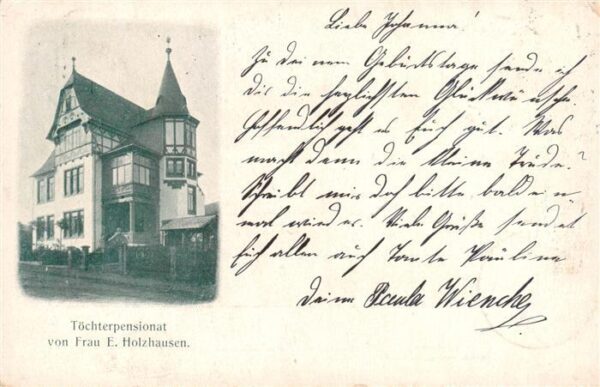 Liebe Johanna!
Zu deinem Geburtstage sende ich
dir die herzlichsten Glückwünsche.
Hoffentlich geht es Euch gut. Was
macht denn die kleine Trude?
Schreibt mir doch bitte bald ein
mal wieder. Viele Grüße sendet
Euch allen auch Tante Pauline
Deine Paula Wiencke
Töchterpensionat
von Frau E. Holzhausen.